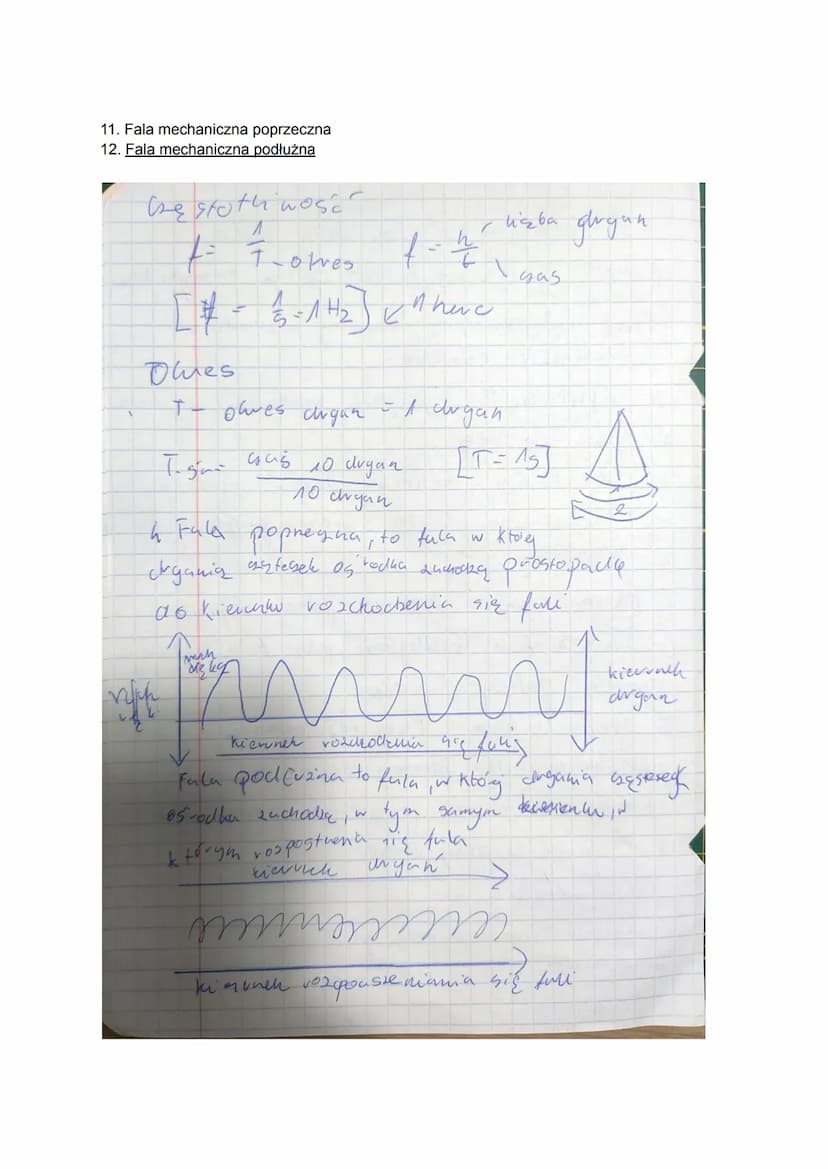 11. Fala mechaniczna poprzeczna
12. Fala mechaniczna podłużna
Częstotliwość
f = 1/T - okres f = n/t liczba drgań
czas
= 1/s = 1 Hz] ↙ 1 herc
Okres
T - okres drgań = 1 drgań
czas 10 drgań [T = 1s]
10 drgań
2
Fala poprzeczna, to fala w której
drgania cząstek ośrodka zachodzą prostopadle
do kierunku rozchodzenia się fali
kierunek
drgań
kierunek rozchodzenia się fali
Fala podłużna to fala, w której drgania cząstek
ośrodka zachodzą, w tym samym kierunku, w
którym rozpostrzenia się fala
kierunek drgań
kierunek rozpouszeniania się fali